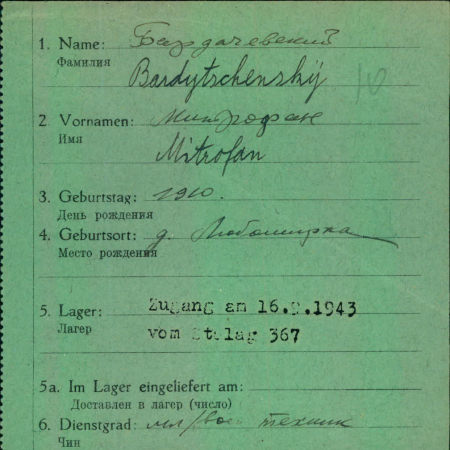 1. Name: Бардачевский
Фамилия
Bardytschenskÿ
10
2 Vornamen: Митрофан
Имя
Mitrofan
3. Geburtstag: 1910.
День рождения
4. Geburtsort: д. Любомирка
Место рождения
5. Lager: Zugang am 16.9.1943
Лагер vom Stalag 367
5a. Im Lager eingeliefert am:
Доставлен в лагер (число)
6. Dienstgrad: мл/воен техник
Чин